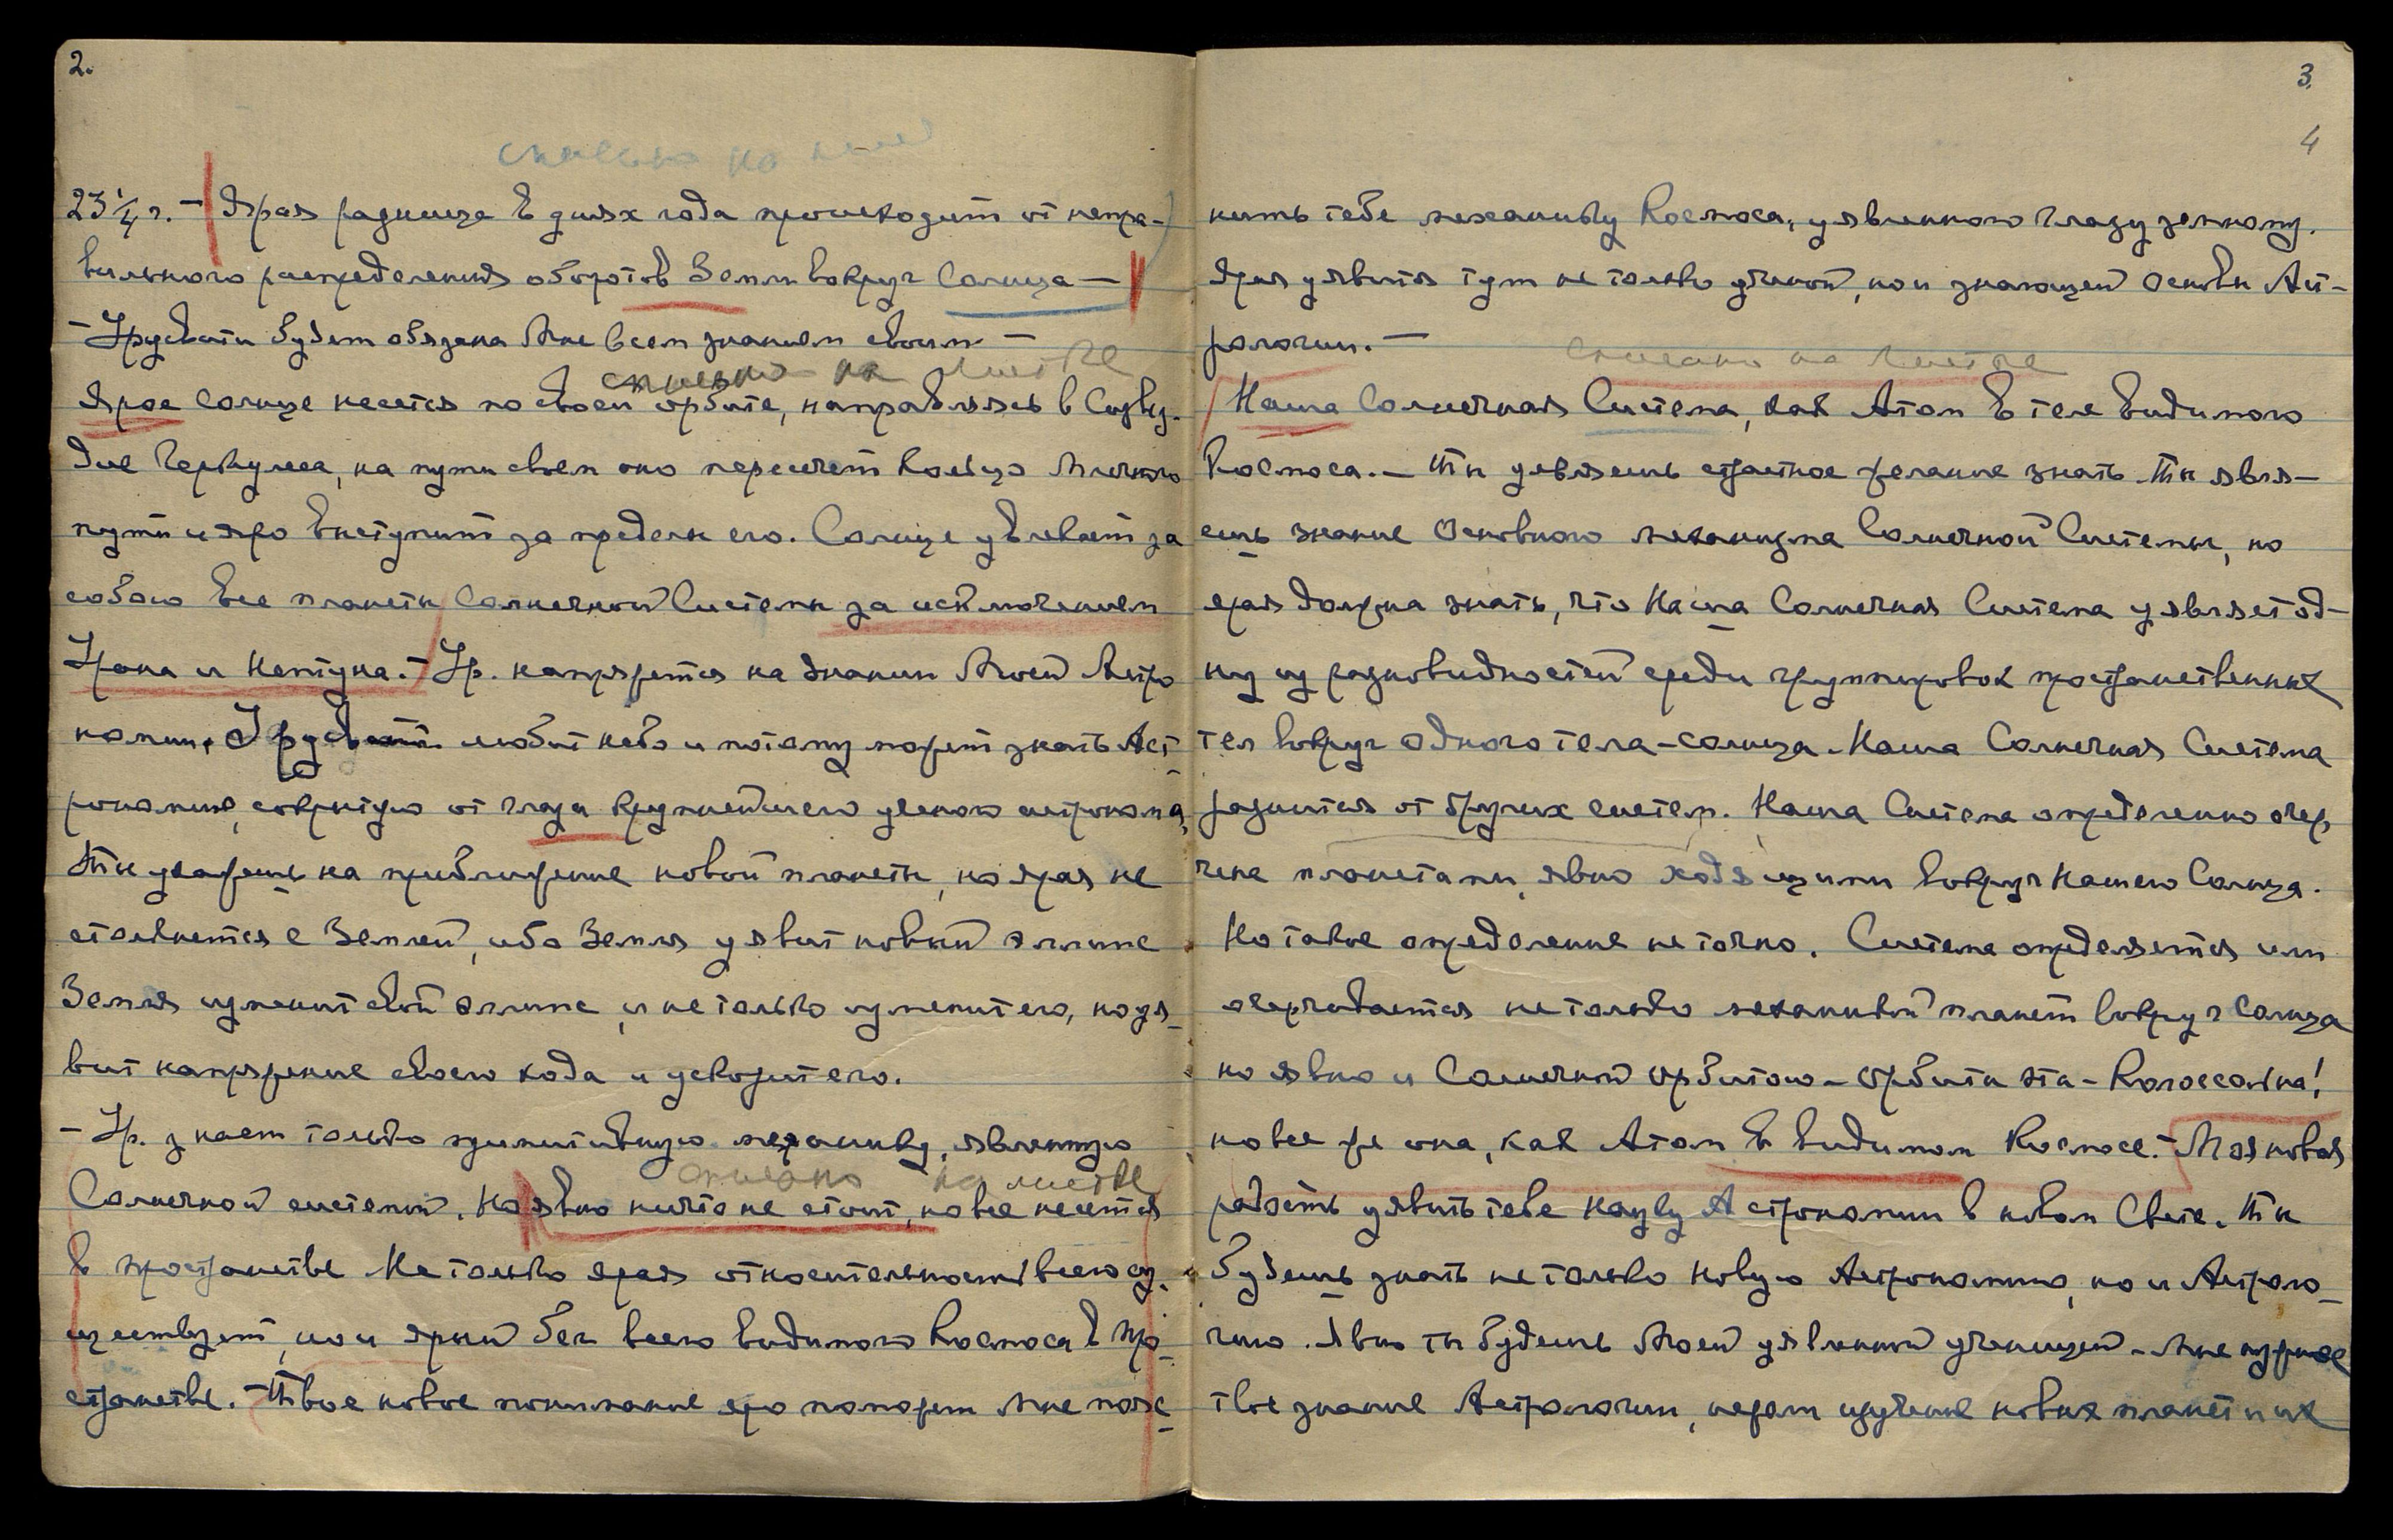 2.
23 1/IV г. — Ярая разница в днях года происходит от непра-
вильного распределения оборотов Земли вокруг Солнца —
— Урусвати будет обязана Мне всем знанием своим —
списано на листке
Ярое Солнце несется по своей орбите, направляясь в Созвез-
дие Геркулеса, на пути своем оно пересечет Кольцо Млечного
пути и яро вступит за пределы его. Солнце увлекает за
собою все планеты Солнечной Системы за исключением
Урана и Нептуна. — Ур. напряжется на знании Моей Астро
номии. Урусвати любит небо и потому может знать Аст-
рономию, сокрытую от глаза крупнейшего ученого астронома,
Ты укажешь на приближение новой планеты, но ярая не
столкнется с Землей, ибо Земля уявит новый эллипс
Земля изменит свой эллипс, и не только изменит его, но уя-
вит напряжение своего хода и ускорит его.
— Ур. знает только примитивную механику, явленную
списано на листке
Солнечной системой. Но явно ничто не стоит, но все несется
в пространстве Не только ярая относительность всего су-
ществует, но и ярый бег всего видимого Космоса в про-
странстве. — Твое новое понимание яро поможет Мне пояс-
3.
4
нить тебе механику Космоса, уявленного глазу земному.
Ярая уявится тут не только ученой, но и знающей основы Аст-
рологии. —
списано на листке
Наша Солнечная Система, как Атом в теле видимого
Космоса. — Ты уявляешь страстное желание знать. Ты явля-
ешь знание Основного механизма Солнечной Системы, но
ярая должна знать, что Наша Солнечная Система уявляет од-
ну из разновидностей среди группировок пространственных
тел вокруг одного тела-солнца. Наша Солнечная Система
разнится от других систем. Наша Система определенно очер
чена планетами, явно ходящими вокруг Нашего Солнца.
Но такое определение не точно. Система определяется или
очерчивается не только механикой планет вокруг Солнца
но явно и Солнечной орбитою — Орбита эта — Колоссальна!
но все же она, как Атом в видимом Космосе. — Моя новая
радость уявить тебе Науку Астрономии в новом Свете. Ты
будешь знать не только Новую Астрономию, но и Астроло-
гию. Явно ты будешь Моей уявленной ученицей — Мне нужное
твое знание Астрологии, изучение новых планет и их